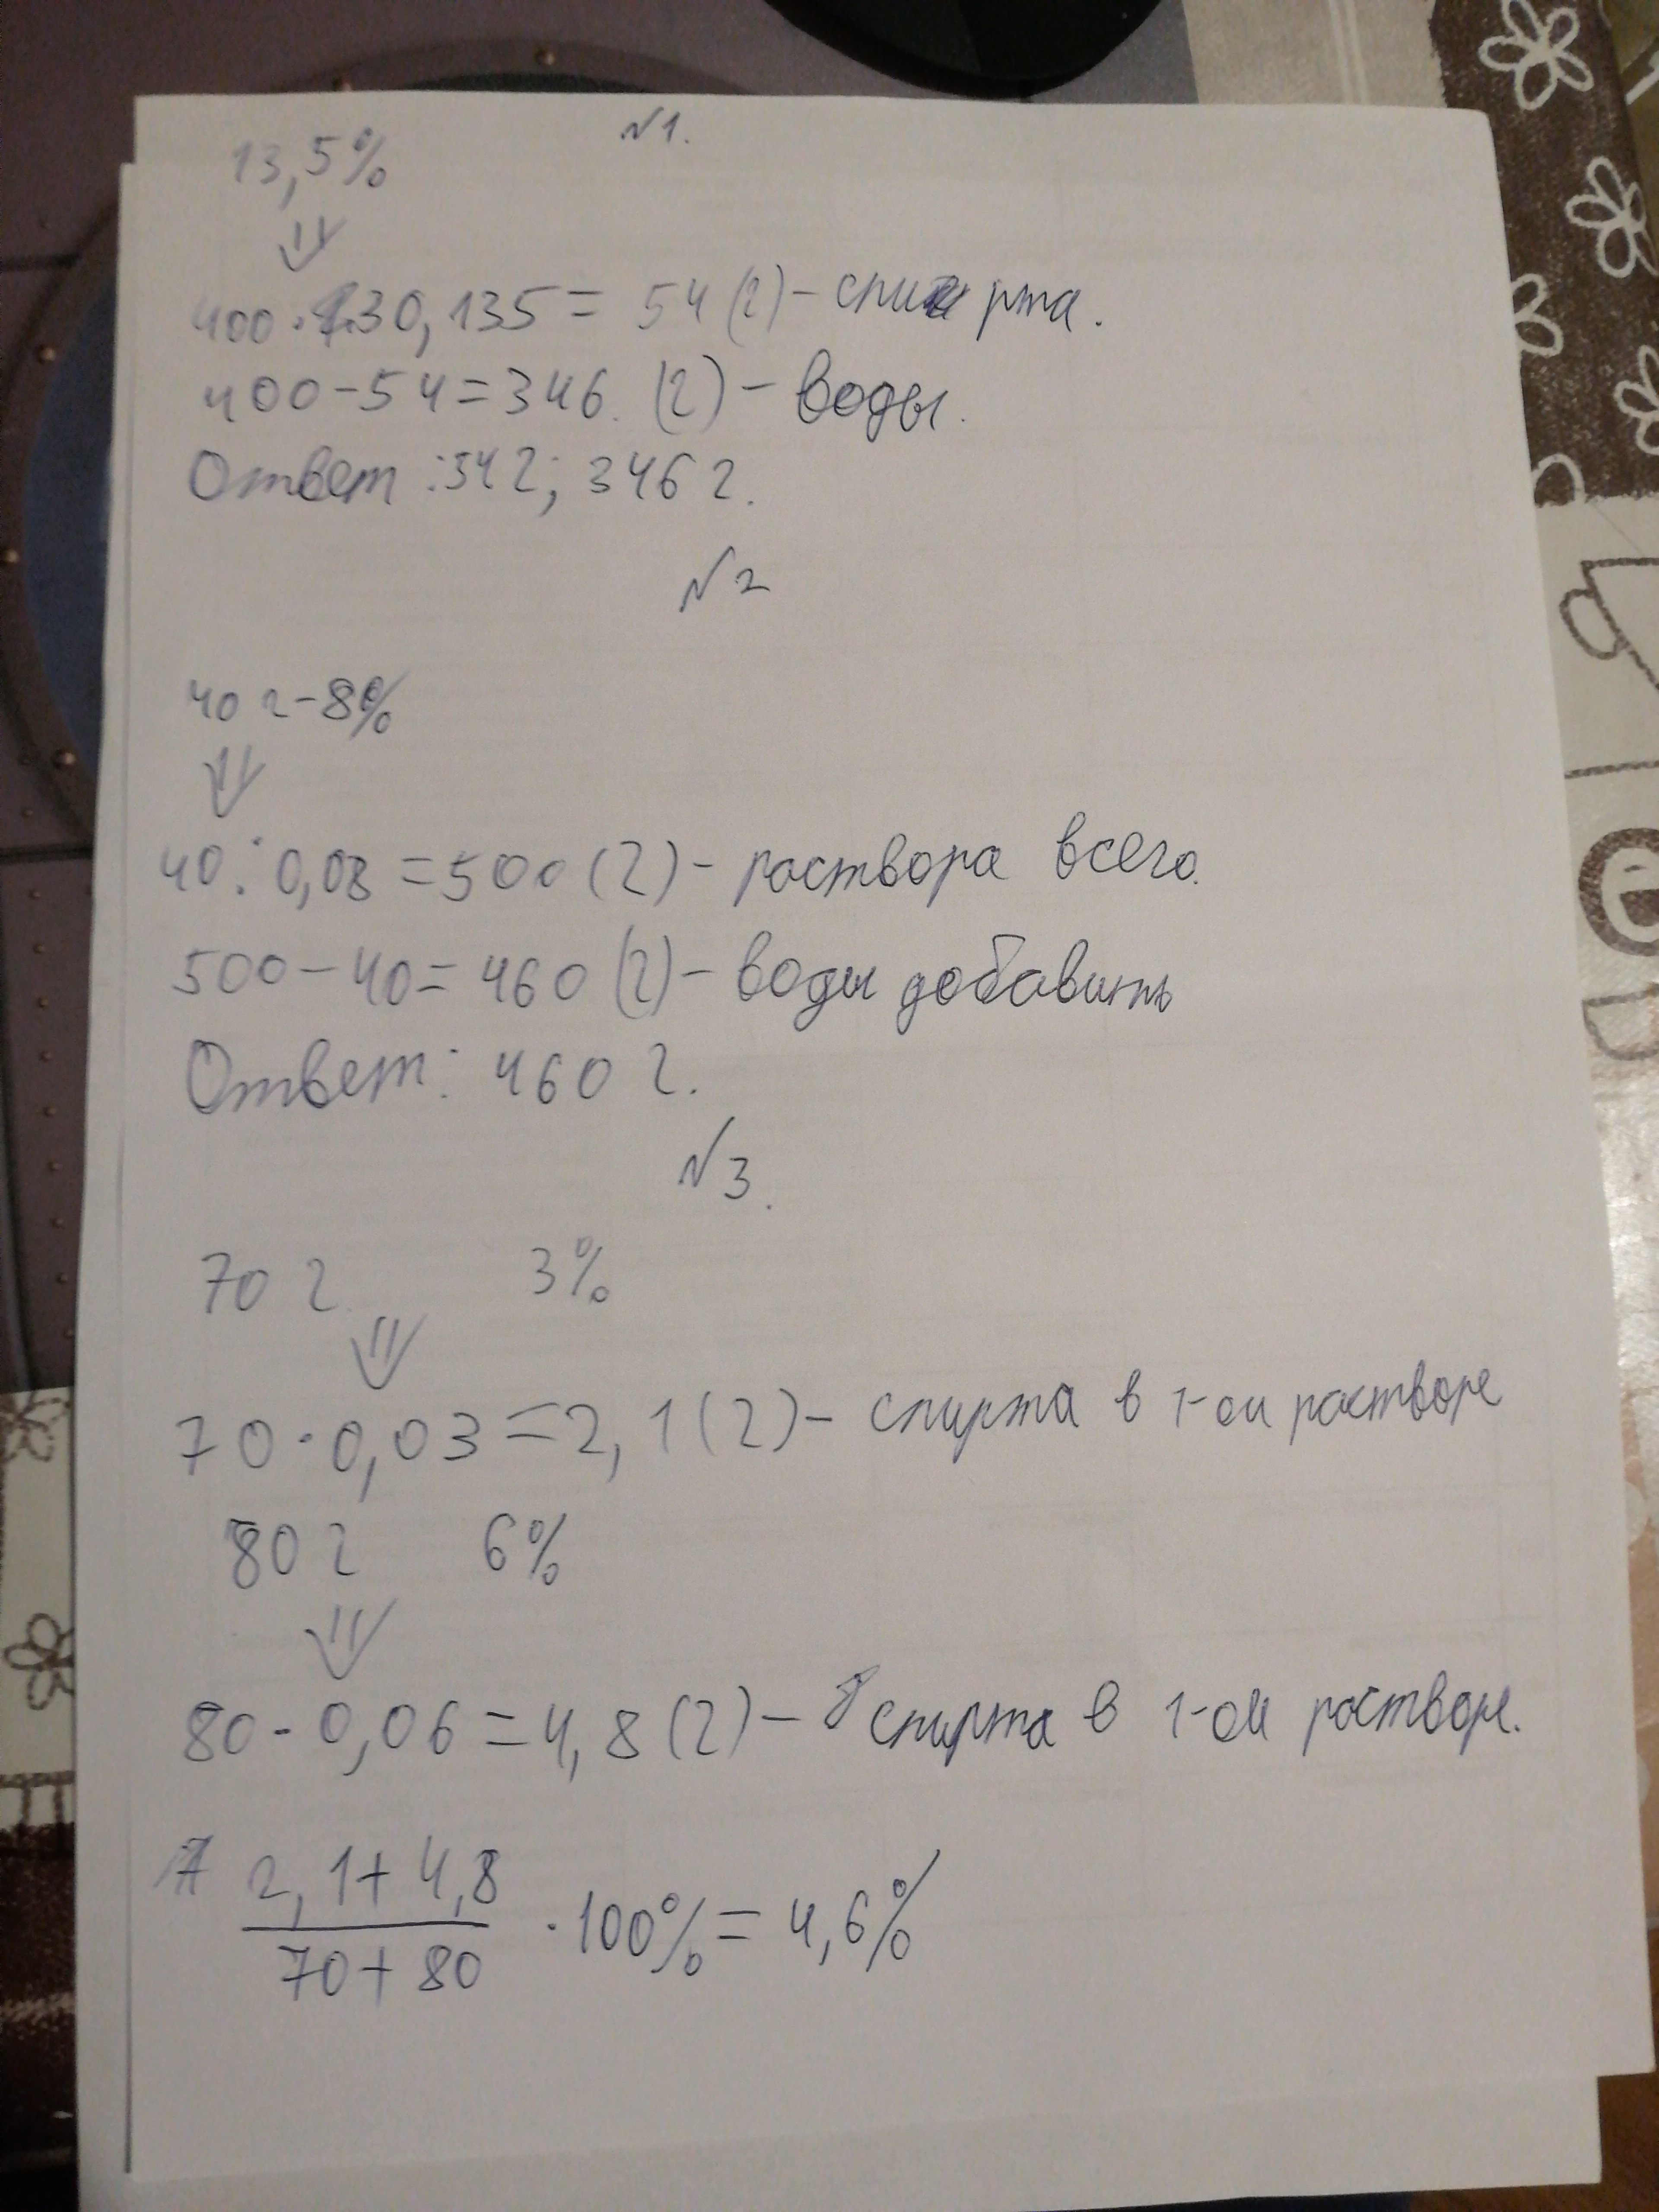 №1.
13,5%
400 · 0,135 = 54 (г) - спирта.
400 - 54 = 346. (г) - воды.
Ответ: 54 г; 346 г.
№2
40 г - 8%
40 : 0,08 = 500 (г) - раствора всего.
500 - 40 = 460 (г) - воды добавить
Ответ: 460 г.
№3.
70 г 3%
70 · 0,03 = 2,1 (г) - спирта в 1-ом растворе
80 г 6%
80 · 0,06 = 4,8 (г) - спирта в 1-ом растворе.
2,1 + 4,8
70 + 80 · 100% = 4,6%